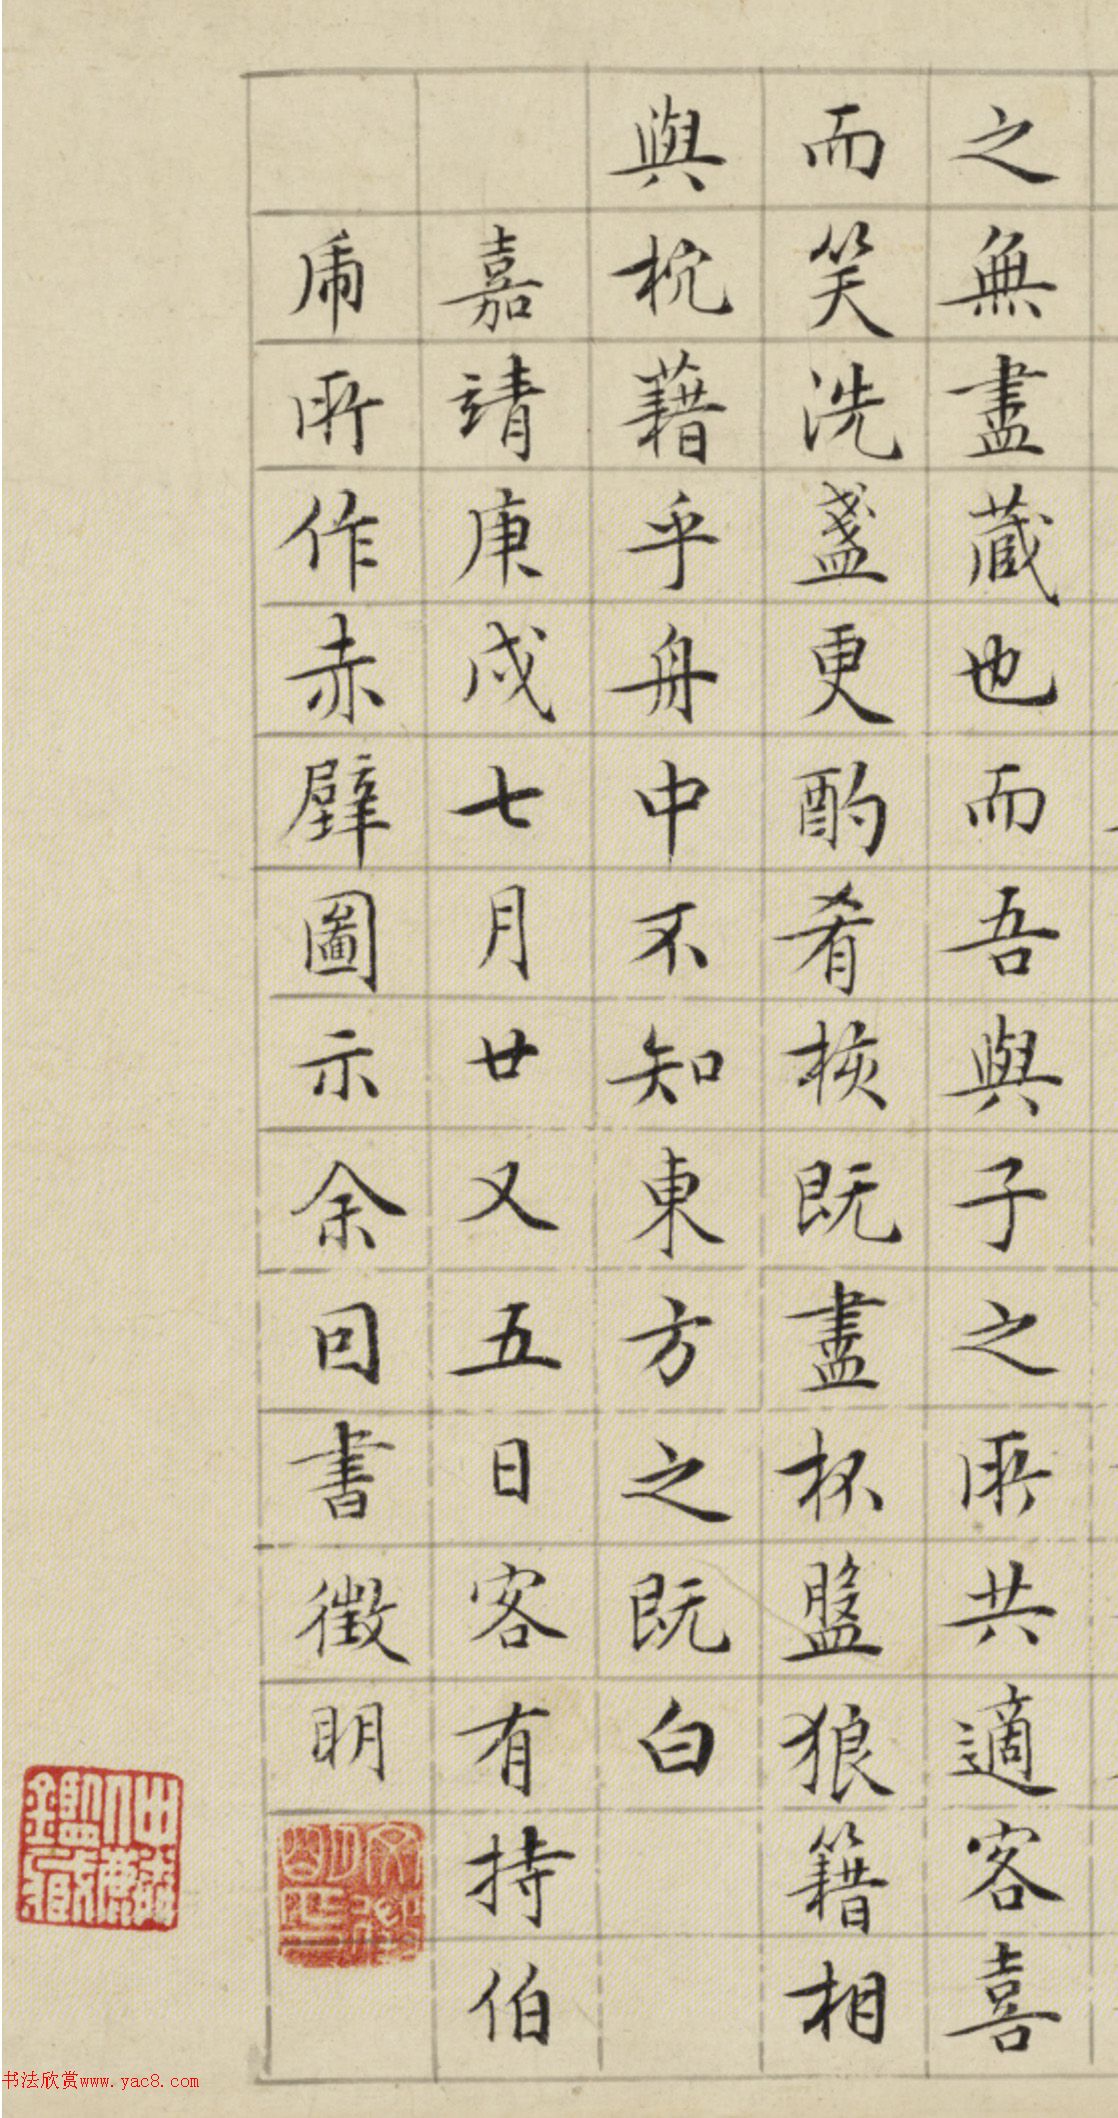 之無盡藏也而吾與子之所共適客喜
而笑洗盞更酌肴核既盡杯盤狼籍相
與枕藉乎舟中不知東方之既白
嘉靖庚戌七月廿又五日客有持伯
虎所作赤壁圖示余因書徵明
书法欣赏www.yac8.com